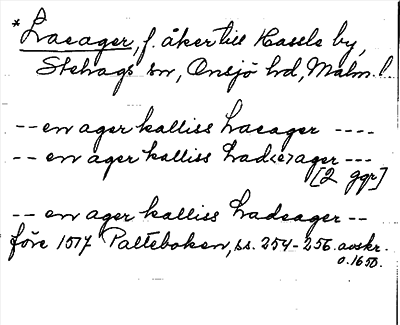 *Ladager, f. åker till Hassle by,
Stehags sn, Onsjö hd, Malm. l.
-- en ager kalliss Ladager ----
-- en ager kalliss Lad<e>ager ---
[2 ggr]
-- en ager kalliss Ladeager --
före 1517 Palteboken, ss. 254-256. avskr.
o. 1650.